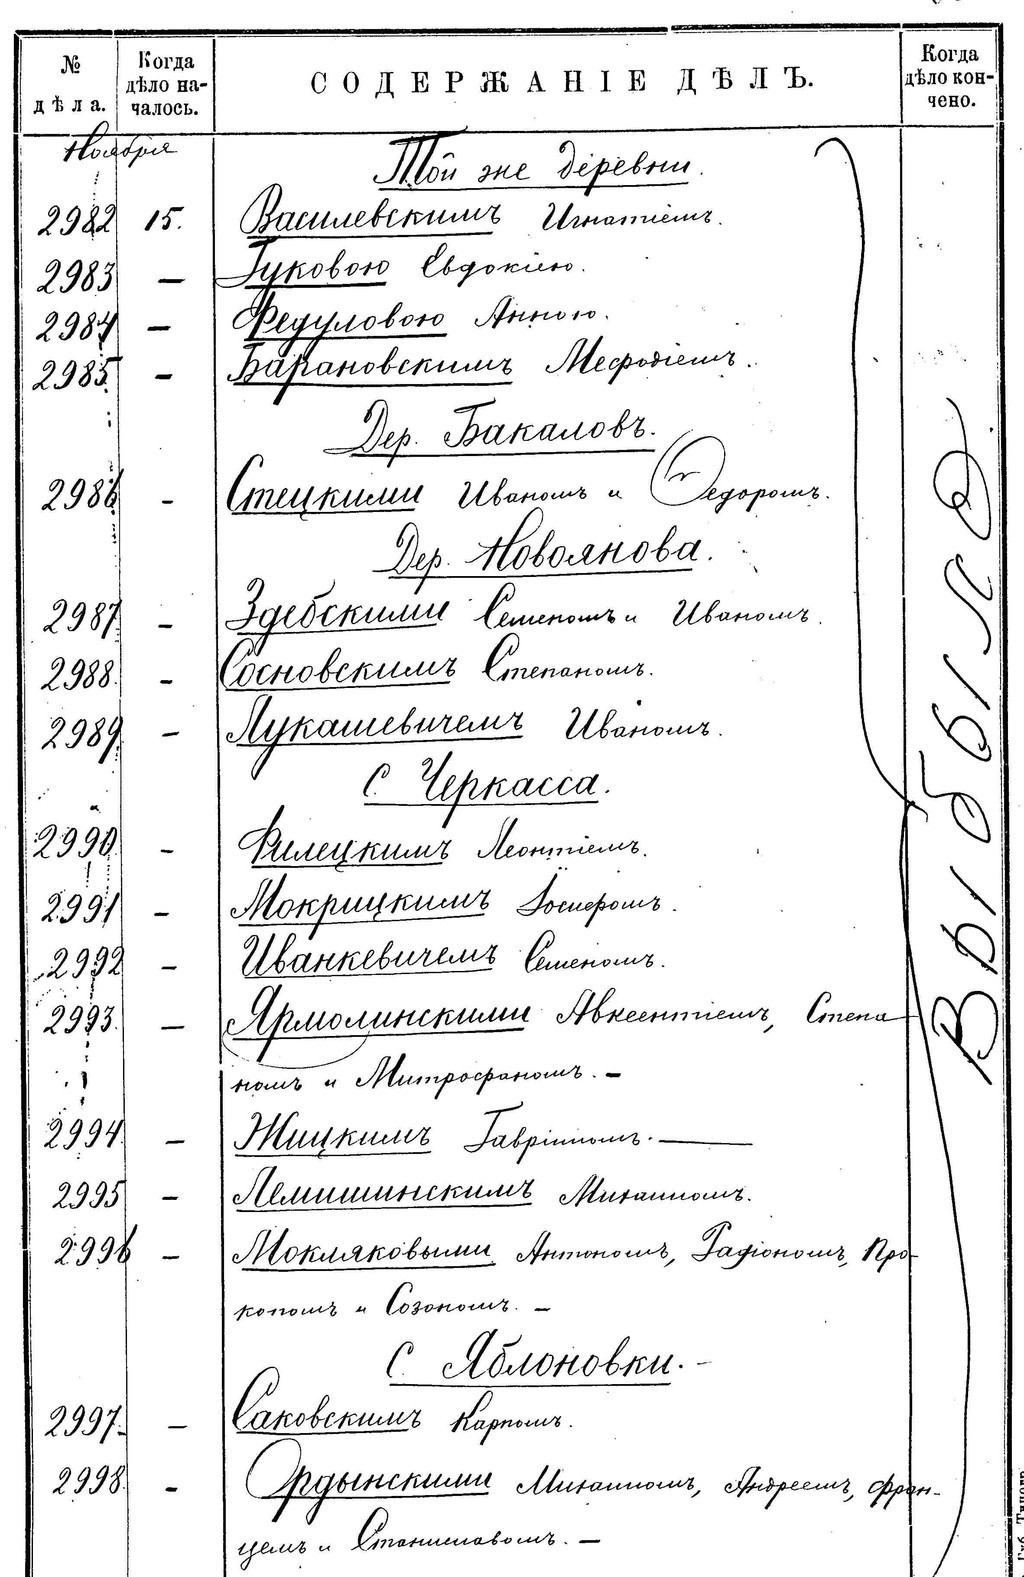 № дѣла.
Когда дѣло на-
чалось.
СОДЕРЖАНІЕ ДѢЛЪ.
Когда
дѣло кон-
чено.
Ноября
Той же деревни.
2982 15. Василевскимъ Игнатіемъ.
2983 — Гуковою Евдокіею.
2984 — Федуловою Анною.
2985 - Барановскимъ Мефодіемъ.
Дер. Бакаловъ.
2986 - Стецкими Иваномъ и Федоромъ.
Дер. Новоянова.
2987 - Здебскими Семеномъ и Иваномъ.
2988. - Сосновскимъ Степаномъ.
2989 - Лукашевичемъ Иваномъ.
С. Черкасса.
2990 - Филецкимъ Леонтіемъ.
2991 - Мокрицкимъ Іосифомъ.
2992 - Иванкевичемъ Семеномъ.
2993. — Ярмолинскими Авксентіемъ, Степа
номъ и Митрофаномъ. —
2994 - Жицкимъ Гавріиломъ. —
2995 - Лемишинскимъ Михаиломъ.
2996 - Мокляковыми Антономъ, Радіономъ, Про-
копомъ и Созономъ. —
С. Яблоновки. -
2997. - Саковскимъ Карпомъ.
2998. - Ордынскими Михаиломъ, Андреемъ, Фран-
цемъ и Станиславомъ. —
Губ. Типогр.